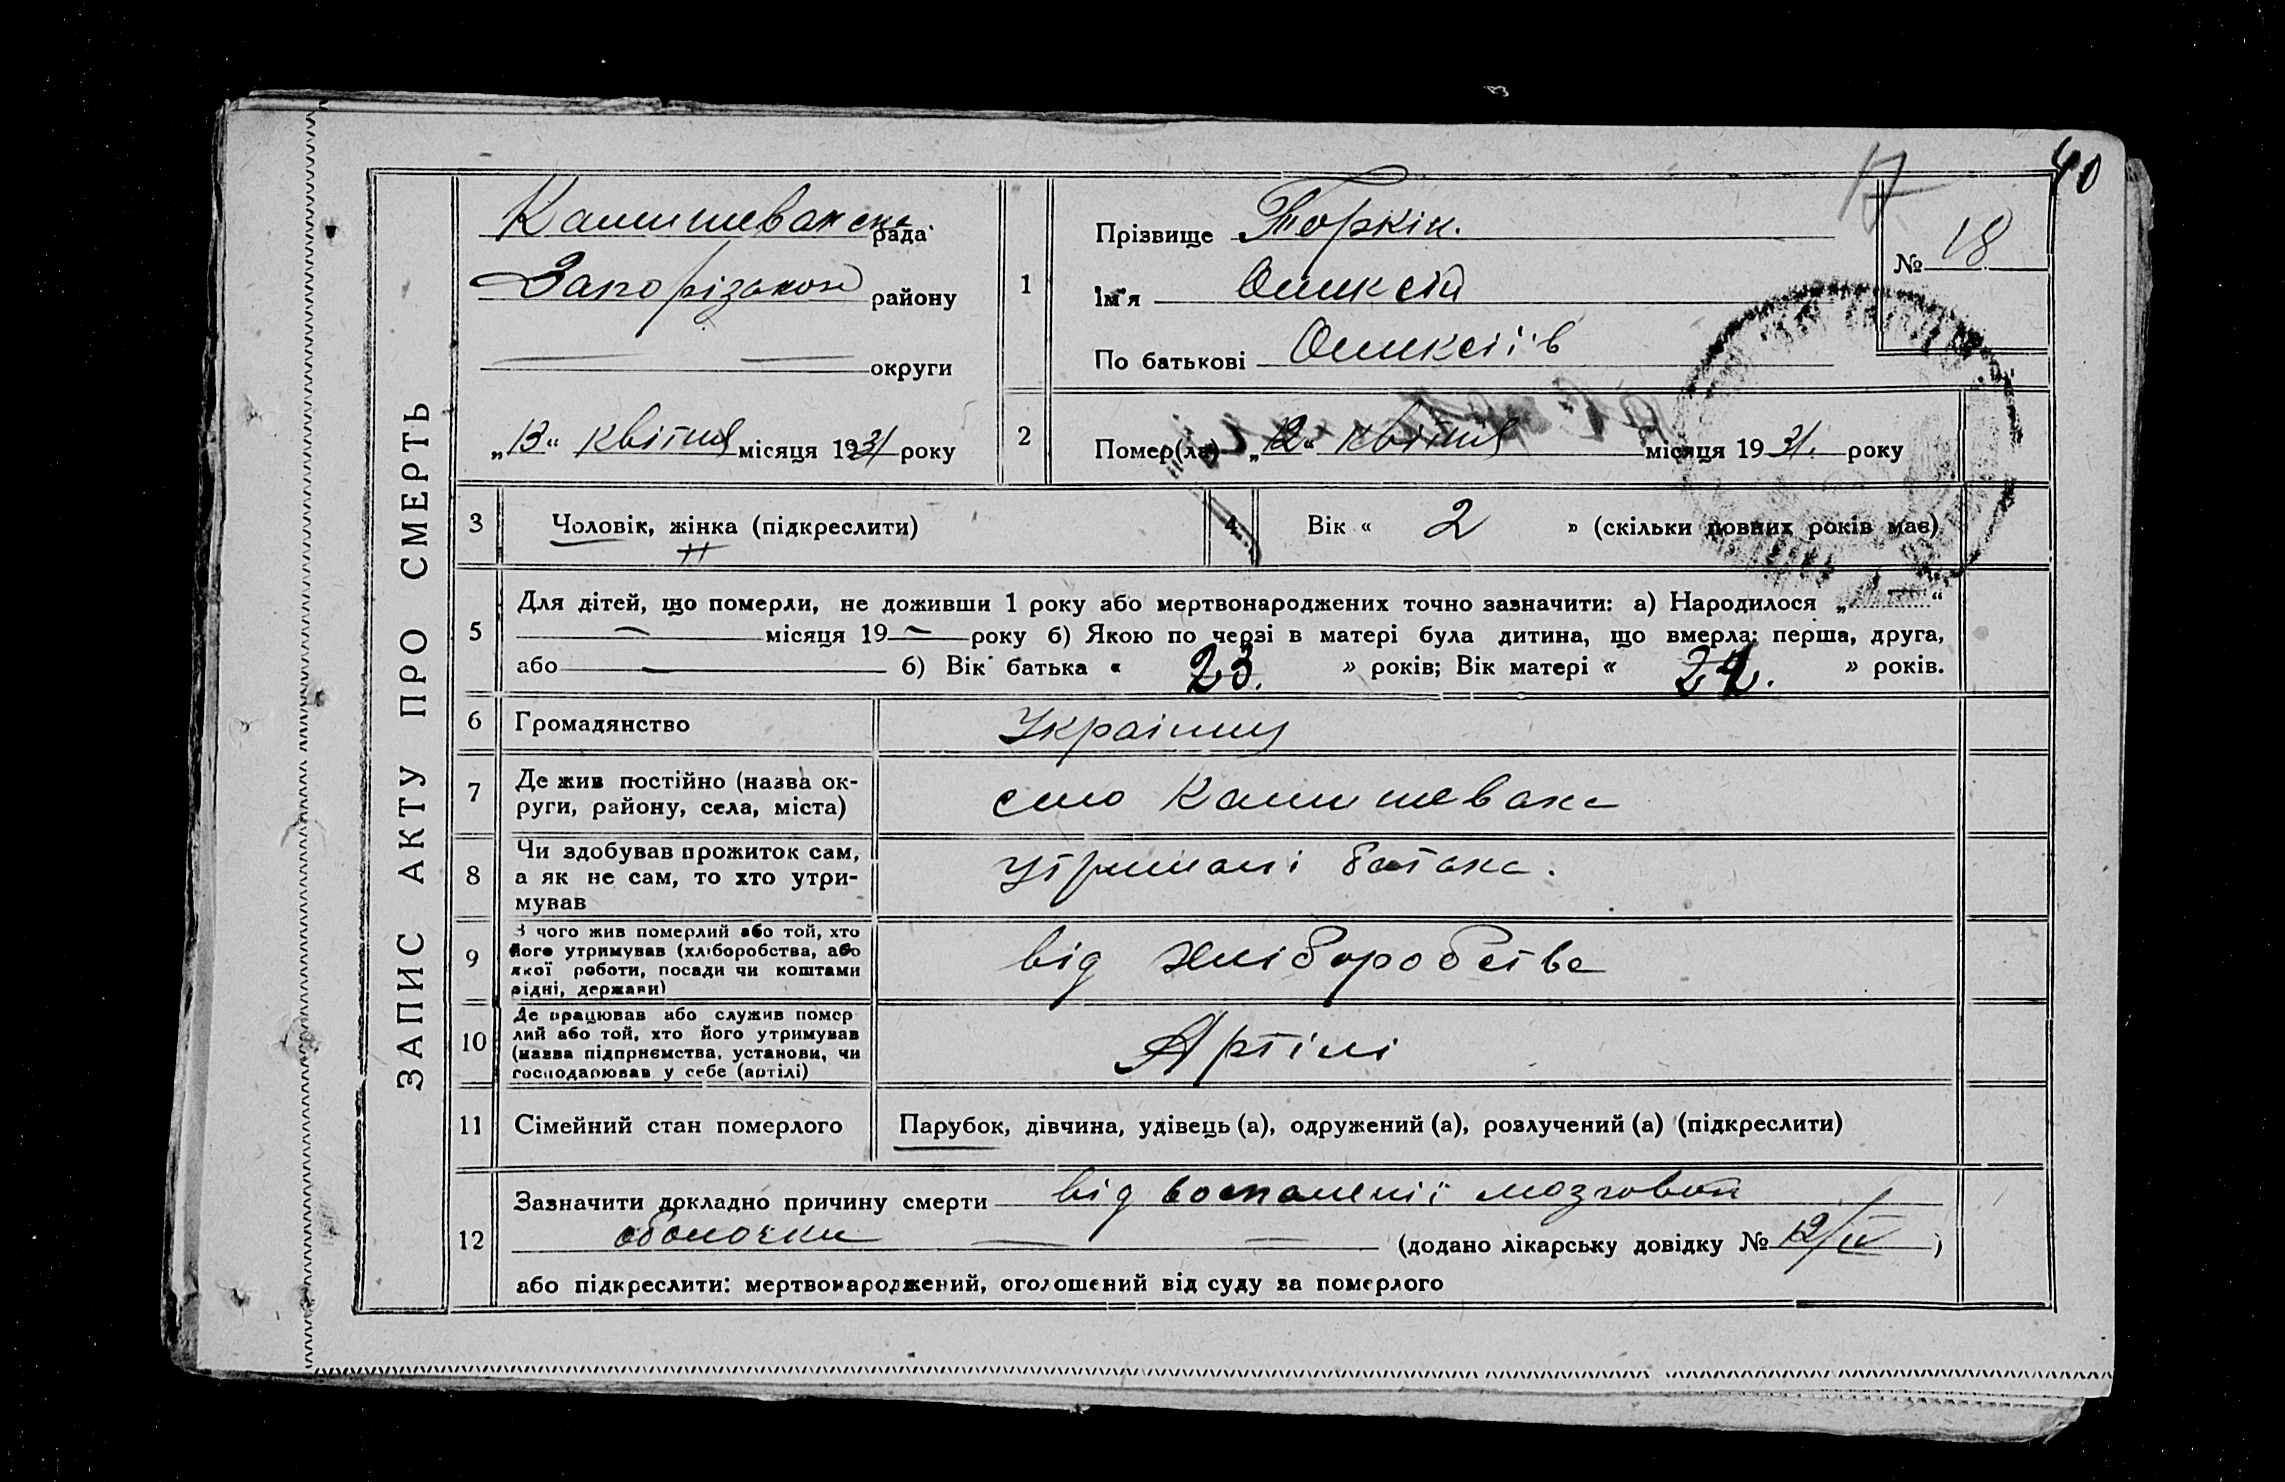 40
17
ЗАПИС АКТУ ПРО СМЕРТЬ
Камишеваська рада
Запорізького району
округи
„13“ квітня місяця 1931 року
1
Прізвище Торкін.
Ім'я Оликсій
По батькові Оликсіїв
№ 18
2
Помер(ла) „12“ квітня місяця 1931. року
3 Чоловік, жінка (підкреслити)
4 Вік « 2 » (скільки повних років має)
5
Для дітей, що померли, не доживши 1 року або мертвонароджених точно зазначити: а) Народилося „ “
місяця 19 року б) Якою по черзі в матері була дитина, що вмерла: перша, друга,
або б) Вік батька « 23. » років; Вік матері « » років.
6 Громадянство
7 Де жив постійно (назва ок-
руги, району, села, міста)
село Камишеваха
8 Чи здобував прожиток сам,
а як не сам, то хто утри-
мував
утримані батька.
9 З чого жив померлий або той, хто
його утримував (хліборобства, або
якої роботи, посади чи коштами
рідні, держави)
від хліборобства
10 Де працював або служив помер
лий або той, хто його утримував
(назва підприємства, установи, чи
господарював у себе (артілі)
Артілі
11 Сімейний стан померлого
Парубок, дівчина, удівець (а), одружений (а), розлучений (а) (підкреслити)
12
Зазначити докладно причину смерти від воспаленії мозговой
оболочки (додано лікарську довідку № 12/IV )
або підкреслити: мертвонароджений, оголошений від суду за померлого